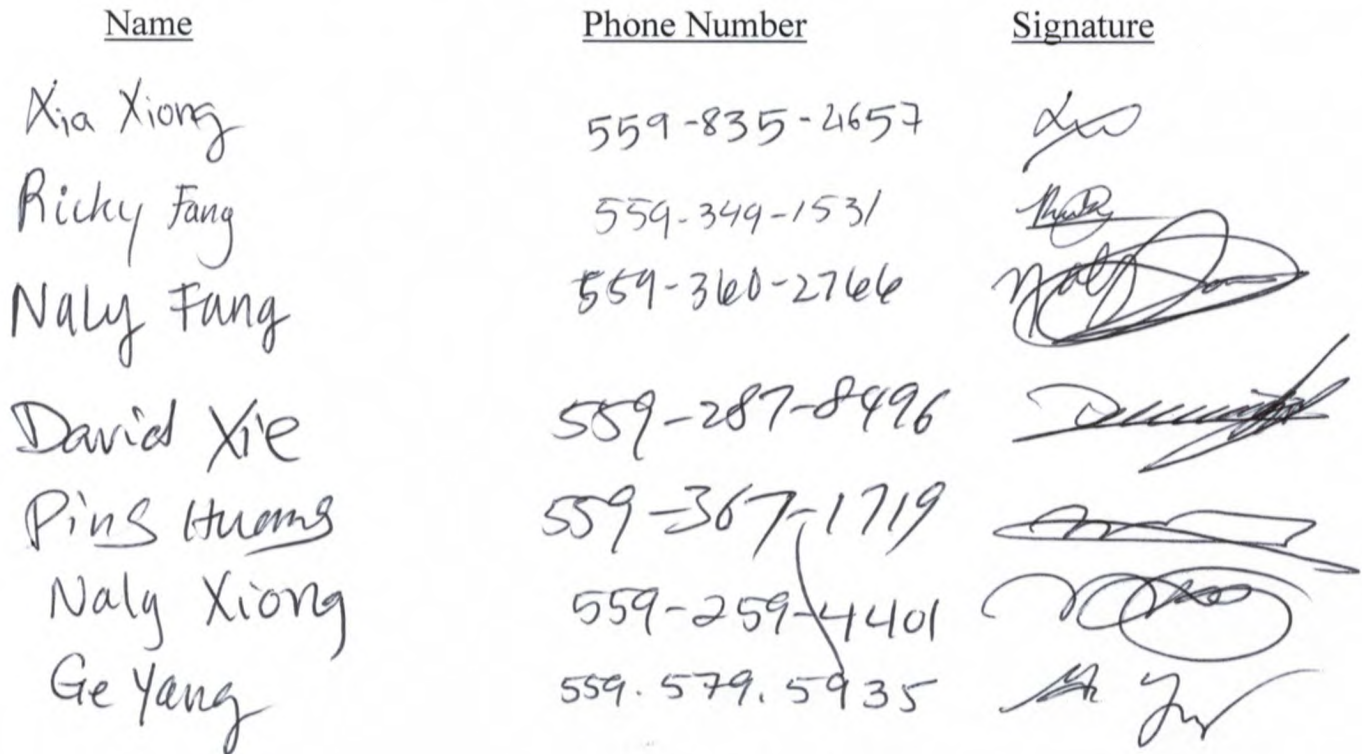 Name Phone Number Signature
Xia Xiong 559-835-2657
Ricky Fang 559-349-1531
Naly Fang 559-360-2766
David Xie 559-287-8496
Ping Huang 559-367-1719
Naly Xiong 559-259-4401
Ge Yang 559.579.5935